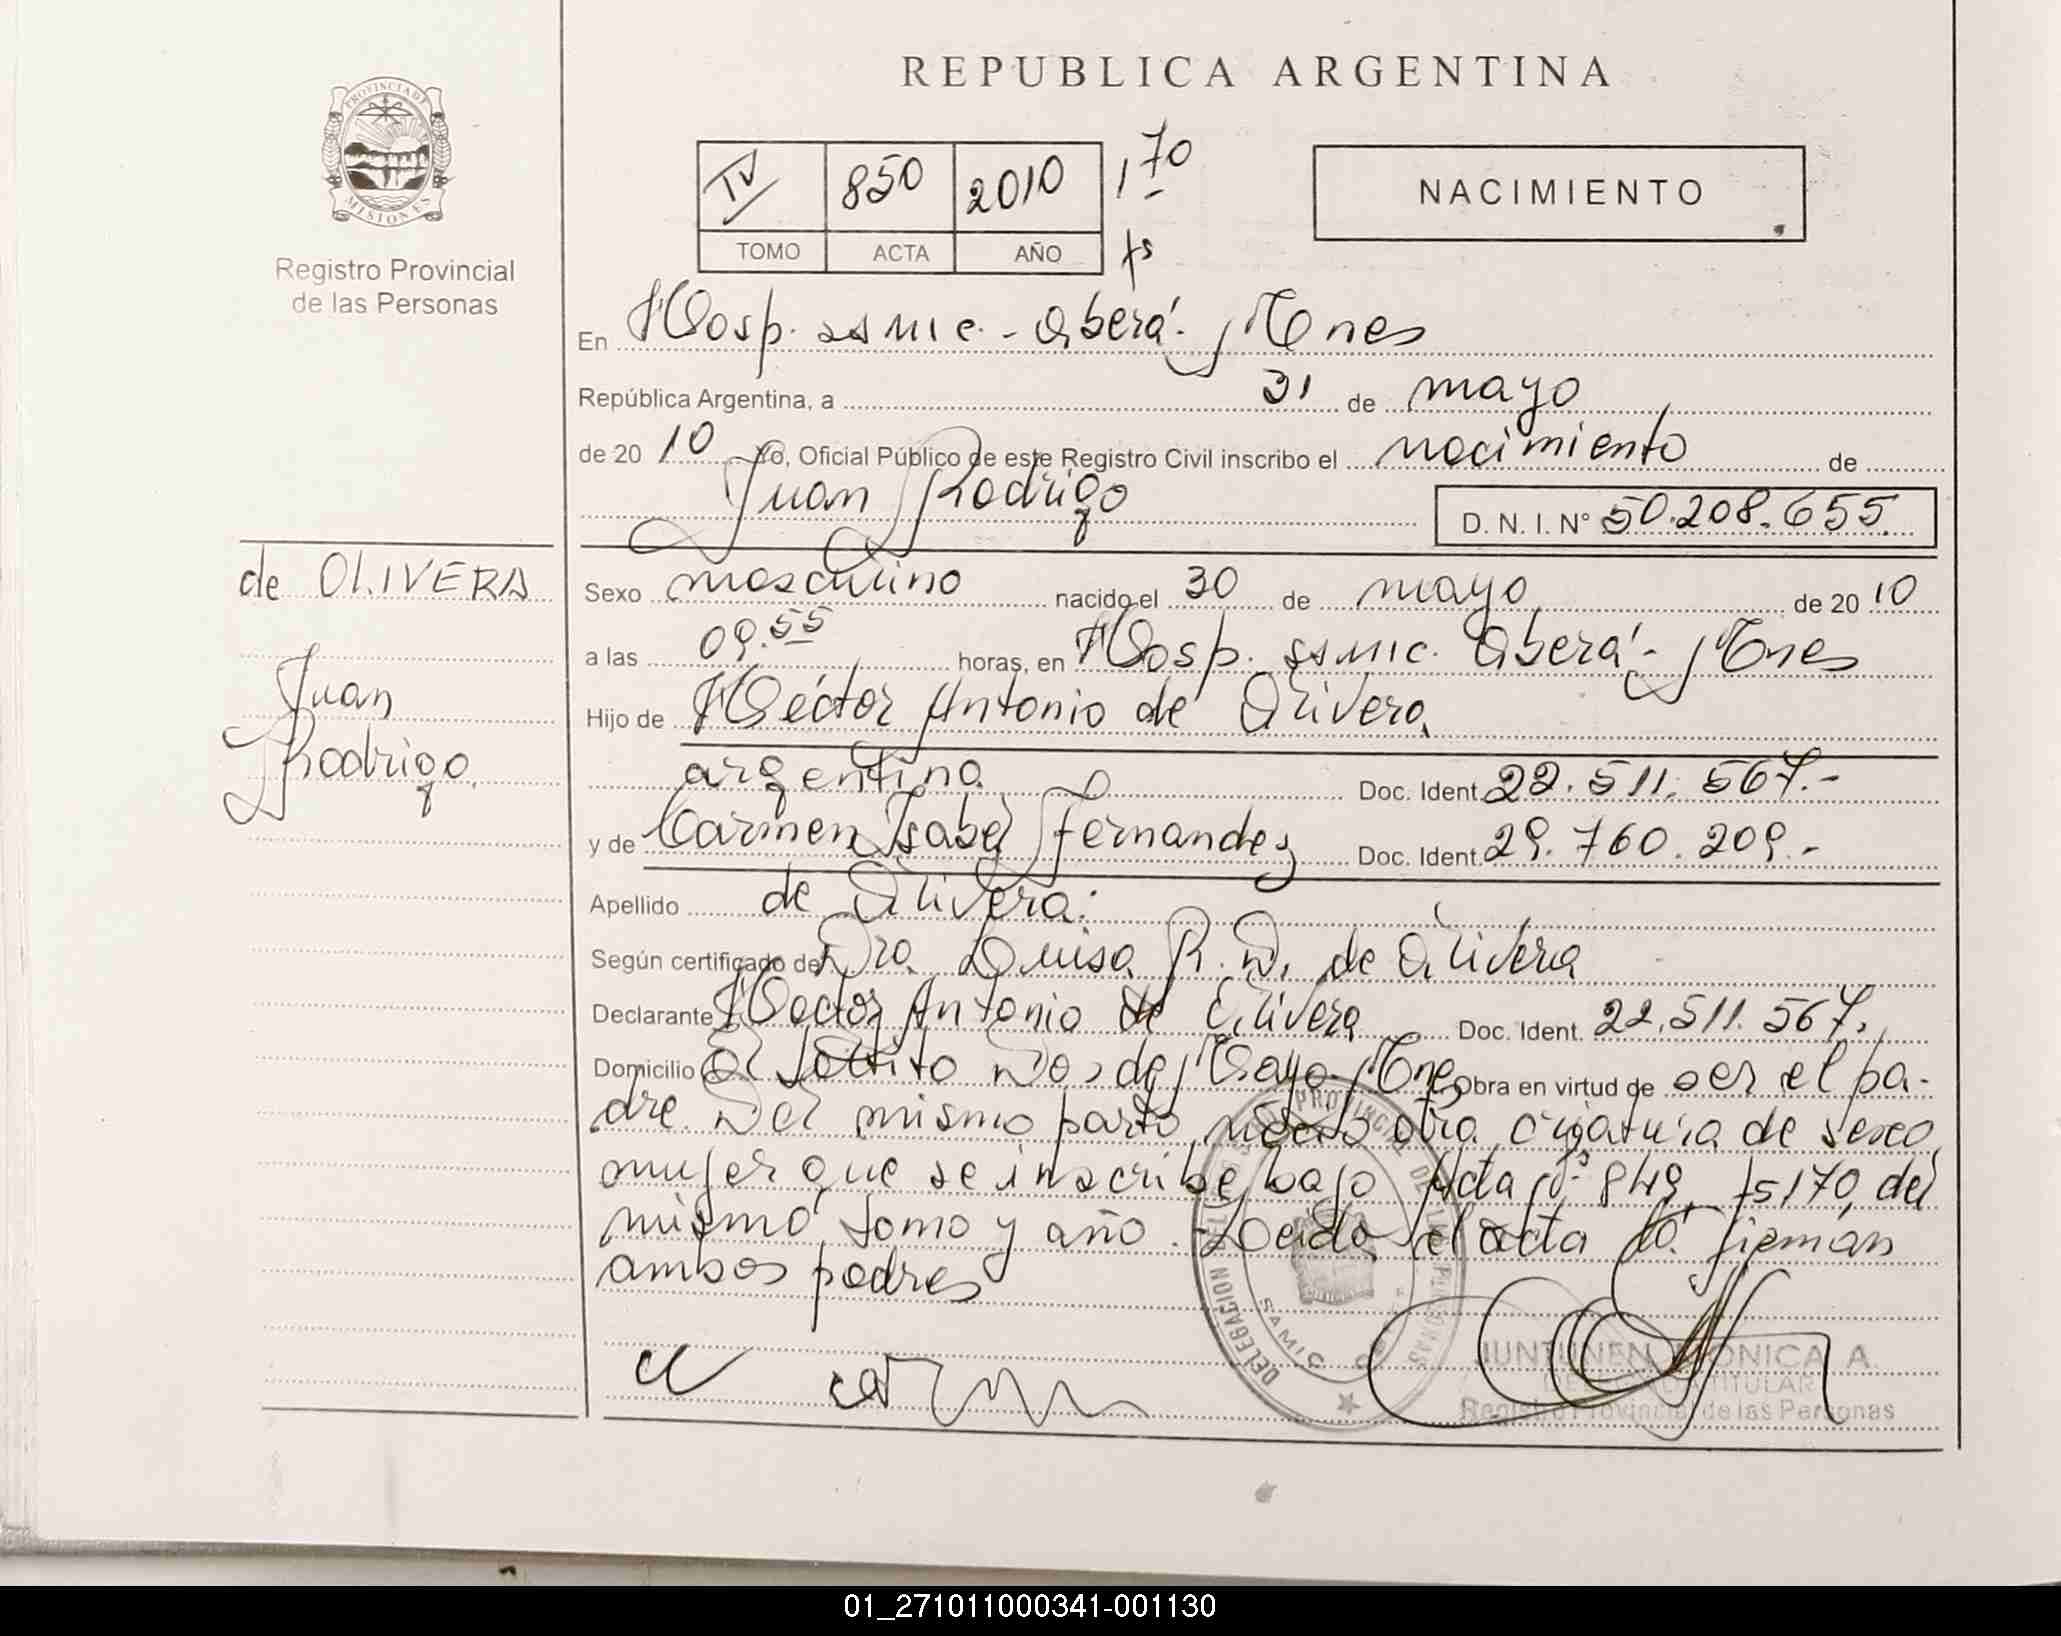 REPUBLICA ARGENTINA
PROVINCIA DE
MISIONES
Registro Provincial
de las Personas
IV 850 2010 170
TOMO ACTA AÑO fs
NACIMIENTO
En Hosp. SAMIC - Oberá - Mnes
República Argentina, a 31 de mayo
de 20 10 Yo, Oficial Público de este Registro Civil inscribo el nacimiento de
Juan Rodrigo D. N. I. N° 50.208.655
de OLIVERA
Juan
Rodrigo
Sexo masculino nacido el 30 de mayo de 20 10
a las 09.55 horas, en Hosp. SAMIC. Oberá - Mnes
Hijo de Héctor Antonio de Olivera
argentina Doc. Ident. 22.511.567.-
y de Carmen Isabel Fernandez Doc. Ident. 29.760.209.-
Apellido de Olivera.
Según certificado de Dra. Luisa R. D. de Olivera
Declarante Hector Antonio de Olivera Doc. Ident. 22.511.567.
Domicilio El Saltito Dos de Mayo - Mnes Obra en virtud de ser el pa-
dre. Del mismo parto, nació otra criatura de sexo
mujer que se inscribe bajo Acta N° 849, fs 170, del
mismo tomo y año. - Leida el acta la firman
ambos padres
DELEGACION DEL REGISTRO PROVINCIAL DE LAS PERSONAS
SAMIC OBERA
JUNTUNEN MONICA A.
DELEGADA TITULAR
Registro Provincial de las Personas
01_271011000341-001130